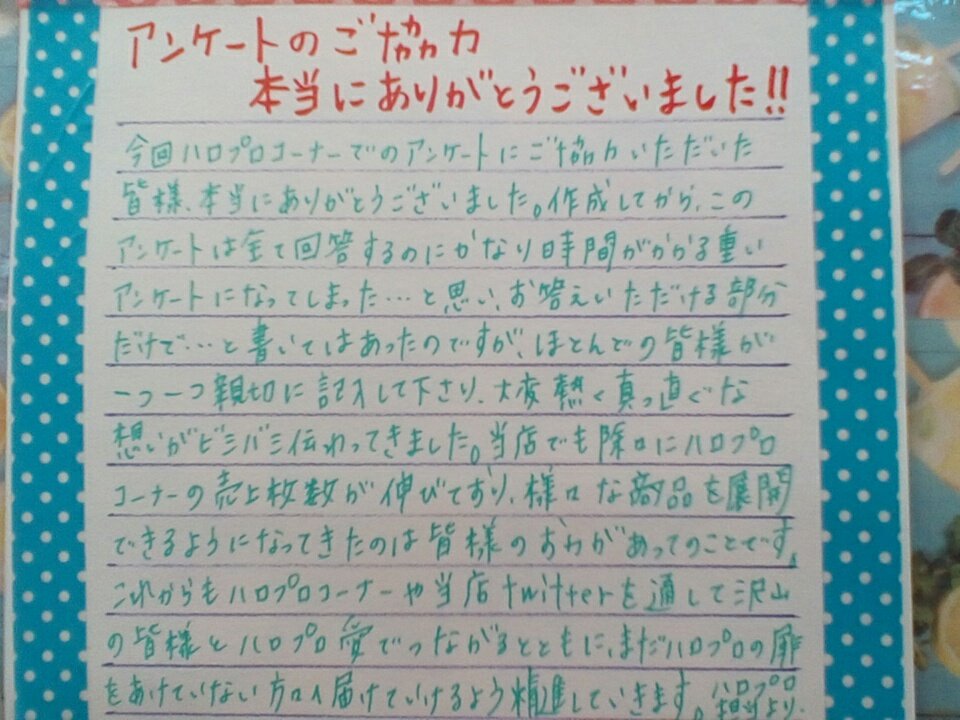 アンケートのご協力
本当にありがとうございました!!
今回ハロプロコーナーでのアンケートにご協力いただいた
皆様、本当にありがとうございました。作成してから、この
アンケートは全て回答するのにかなり時間がかかる重い
アンケートになってしまった…と思い、お答えいただける部分
だけで…と書いてはあったのですが、ほとんどの皆様が
一つ一つ親切に記入して下さり、大変熱く真っ直ぐな
想いがビシバシ伝わってきました。当店でも除々にハロプロ
コーナーの売上枚数が伸びており、様々な商品を展開
できるようになってきたのは皆様のおかがあってのことです。
これからもハロプロコーナーや当店twitterを通して沢山
の皆様とハロプロ愛でつながるとともに、まだハロプロの扉
をあけていない方々へ届けていけるよう精進していきます。ハロプロ
担当より.